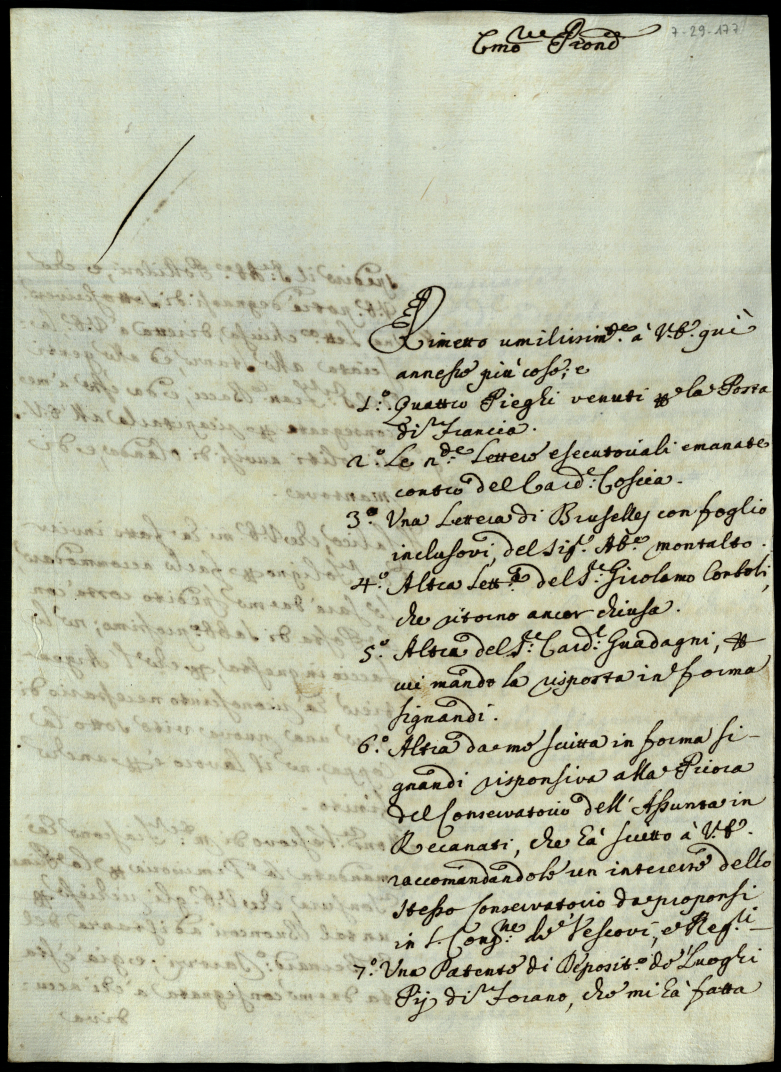 7-29-177
Emo. e Rmo. Prone
Rimetto umilissimte. à V.E. quì
annesse più cose; e
1.° Quattro Pieghi venuti per la Posta
di Francia.
2.° Le nde. Lettere esecutoriali emanate
contro del Card.e Coscia.
3.° Una Lettera di Bruselles con foglio
inclusovi, del Sig.r Ab.e Montalto.
4.° Altra Lett.a del S.r Girolamo Conboli,
che ritorno ancor chiusa.
5.° Altra del S.re Card.l Guadagni, per
cui mando la risposta in forma
signandi.
6.° Altra da me scritta in forma si-
gnandi risponsiva alla Priora
del Conservatorio dell' Assunta in
Recanati, che hà scritto à V.E.
raccomandandole un interesse dello
stesso Conservatorio da proponsi
in S. Congne. de' Vescovi, e Reg.li
7.° Una Patente di Deposit.o de' Luoghi
Pij di Torano, che mi hà fatta